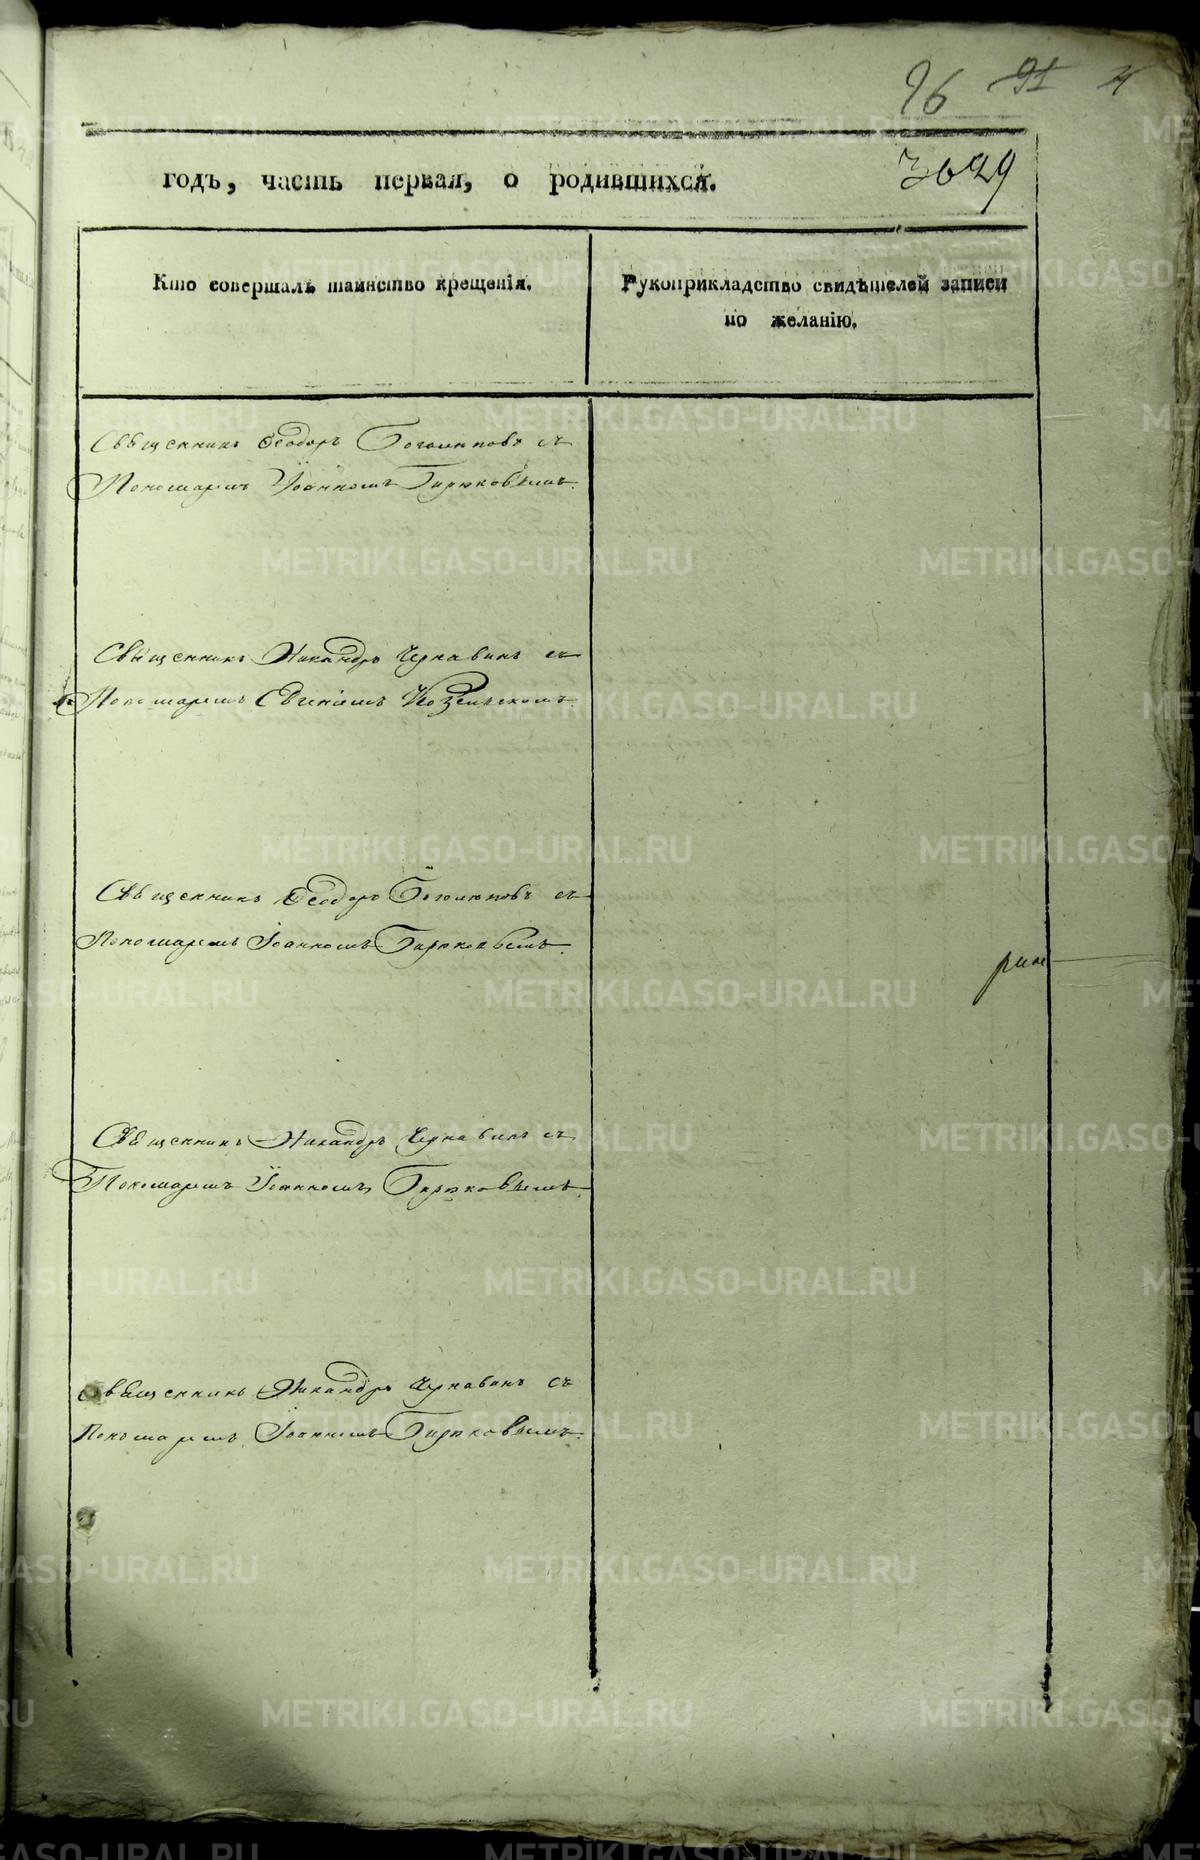 96 91
3629
годъ, часть первая, о родившихся.
Кто совершалъ таинство крещенія.
Рукоприкладство свидѣтелей записи
по желанію.
Священникъ Ѳеодоръ Боголюповъ съ
Пономаремъ Іоанномъ Бирюковымъ.
Священникъ Никандръ Чернавинъ съ
Пономаремъ Евгеніемъ Козельскомъ
Священникъ Ѳеодоръ Боголюповъ съ
Пономаремъ Іоанномъ Бирюковымъ.
Священникъ Никандръ Чернавинъ съ
Пономаремъ Іоанномъ Бирюковымъ.
Священникъ Никандръ Чернавинъ съ
Пономаремъ Іоанномъ Бирюковымъ.
METRIKI.GASO-URAL.RU